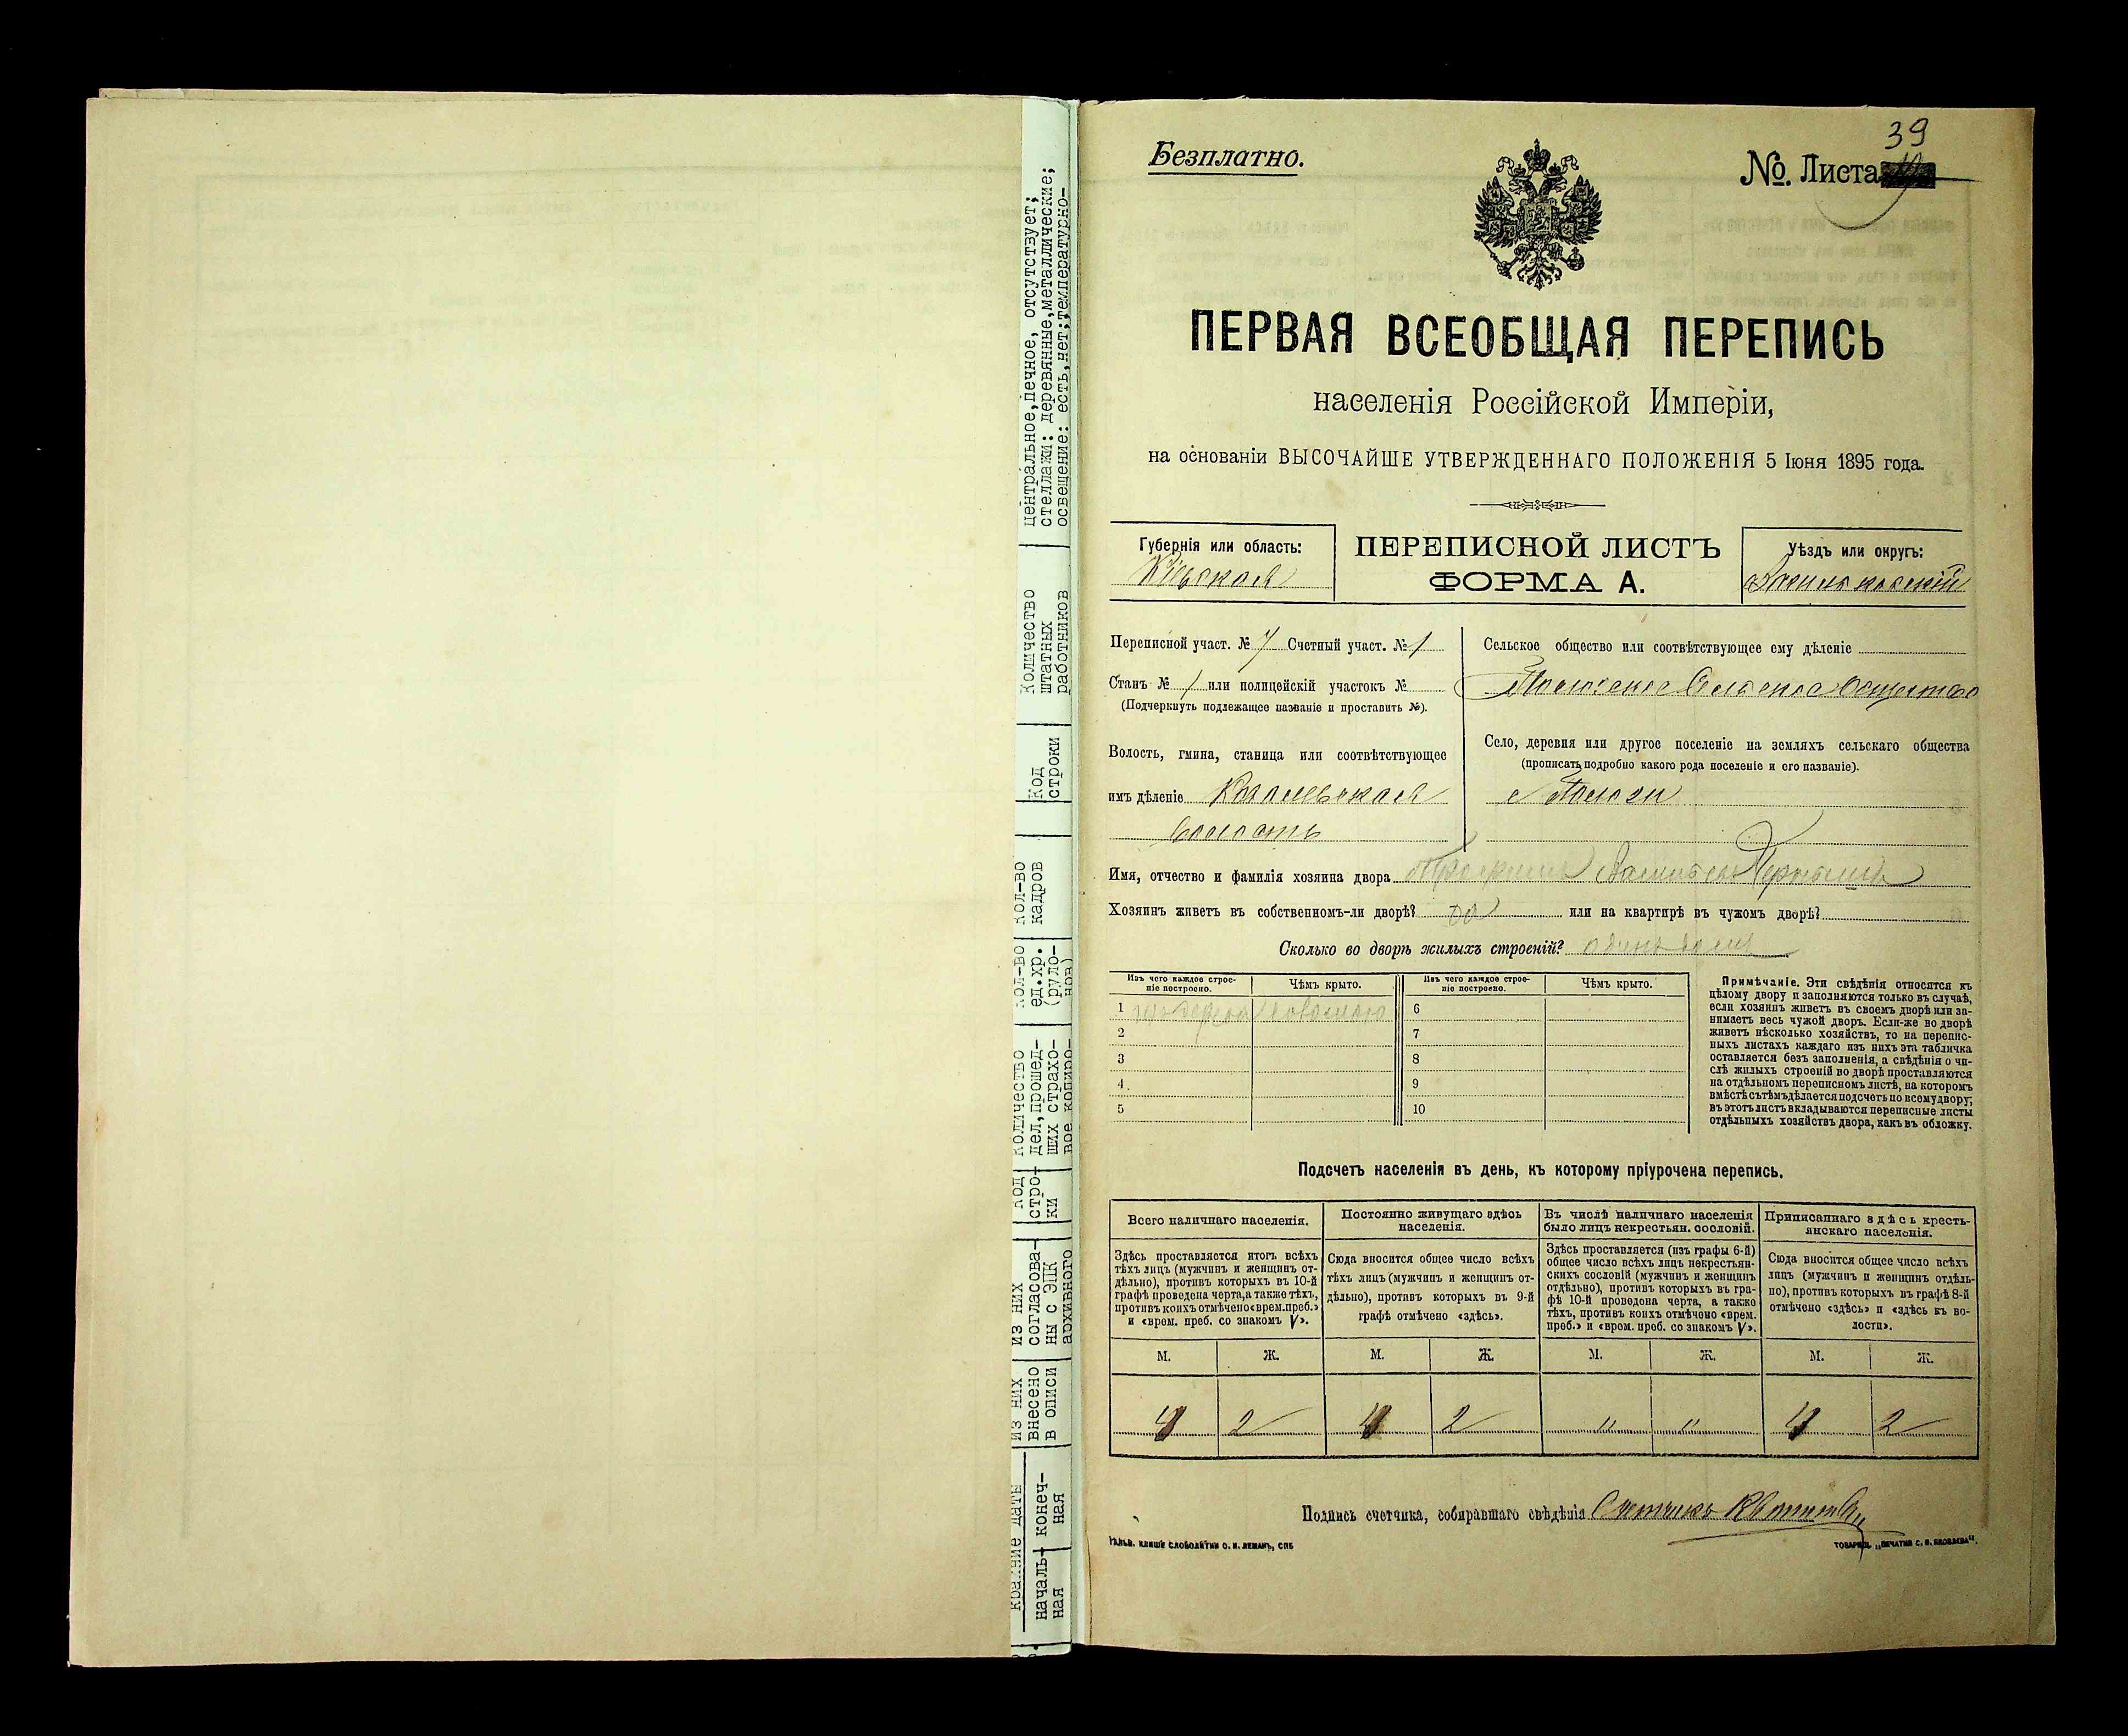 39
Безплатно.
№. Листа
ПЕРВАЯ ВСЕОБЩАЯ ПЕРЕПИСЬ
населенія Россійской Имперіи,
на основаніи ВЫСОЧАЙШЕ УТВЕРЖДЕННАГО ПОЛОЖЕНІЯ 5 Іюня 1895 года.
Губернія или область:
Кіевская
ПЕРЕПИСНОЙ ЛИСТЪ
ФОРМА А.
Уѣздъ или округъ:
Васильковскій
Переписной участ. № 7 Счетный участ. № 1
Станъ № 1 или полицейскій участокъ №
(Подчеркнуть подлежащее названіе и проставить №).
Волость, гмина, станица или соотвѣтствующее
имъ дѣленіе
волость
Сельское общество или соотвѣтствующее ему дѣленіе
Сельское Общество
Село, деревня или другое поселеніе на земляхъ сельскаго общества
(прописать подробно какого рода поселеніе и его названіе).
с Пологи
Имя, отчество и фамилія хозяина двора
Хозяинъ живетъ въ собственномъ-ли дворѣ? да или на квартирѣ въ чужомъ дворѣ?
Сколько во дворѣ жилыхъ строеній? одинъ домъ
Изъ чего каждое строе-
ніе построено.
Чѣмъ крыто.
Изъ чего каждое строе-
ніе построено.
Чѣмъ крыто.
1 изъ дерева соломою
2
3
4
5
6
7
8
9
10
Примѣчаніе. Эти свѣдѣнія относятся къ
цѣлому двору и заполняются только въ случаѣ,
если хозяинъ живетъ въ своемъ дворѣ или за-
нимаетъ весь чужой дворъ. Если-же во дворѣ
живетъ нѣсколько хозяйствъ, то на перепис-
ныхъ листахъ каждаго изъ нихъ эта табличка
оставляется безъ заполненія, а свѣдѣнія о чи-
слѣ жилыхъ строеній во дворѣ проставляются
на отдѣльномъ переписномъ листѣ, на которомъ
вмѣстѣ съ тѣмъ дѣлается подсчетъ по всему двору;
въ этотъ листъ вкладываются переписные листы
отдѣльныхъ хозяйствъ двора, какъ въ обложку.
Подсчетъ населенія въ день, къ которому пріурочена перепись.
Всего наличнаго населенія.
Здѣсь проставляется итогъ всѣхъ
тѣхъ лицъ (мужчинъ и женщинъ от-
дѣльно), противъ которыхъ въ 10-й
графѣ проведена черта, а также тѣхъ,
противъ коихъ отмѣчено «врем. преб.»
и «врем. преб. со знакомъ V».
Постоянно живущаго здѣсь
населенія.
Сюда вносится общее число всѣхъ
тѣхъ лицъ (мужчинъ и женщинъ от-
дѣльно), противъ которыхъ въ 9-й
графѣ отмѣчено «здѣсь».
Въ числѣ наличнаго населенія
было лицъ некрестьян. сословій.
Здѣсь проставляется (изъ графы 6-й)
общее число всѣхъ лицъ некрестьян-
скихъ сословій (мужчинъ и женщинъ
отдѣльно), противъ которыхъ въ гра-
фѣ 10-й проведена черта, а также
тѣхъ, противъ коихъ отмѣчено «врем.
преб.» и «врем. преб. со знакомъ V».
Приписаннаго здѣсь кресть-
янскаго населенія.
Сюда вносится общее число всѣхъ
лицъ (мужчинъ и женщинъ отдѣль-
но), противъ которыхъ въ графѣ 8-й
отмѣчено «здѣсь» и «здѣсь въ во-
лости».
М. Ж. М. Ж. М. Ж. М. Ж.
4 2 4 2 " " 4 2
Подпись счетчика, собиравшаго свѣдѣнія Счетчикъ
ГАЛЬВ. КЛИШЕ СЛОВОЛИТНИ О. И. ЛЕМАНЪ, СПБ
ТОВАРИЩ. „ПЕЧАТНЯ С. П. ЯКОВЛЕВА".
центральное, печное, отсутствует;
стеллажи: деревянные, металлические;
освещение: есть, нет; температурно-
Количество
штатных
работников
Код
строки
кол-во
кадров
кол-во
ед.хр.
(руло-
нов)
количество
дел, прошед-
ших страхо-
вое копиро-
код
стро-
ки
из них
согласова-
ны с ЭПК
архивного
из них
внесено
в описи
крайние даты
началь-
ная
конеч-
ная